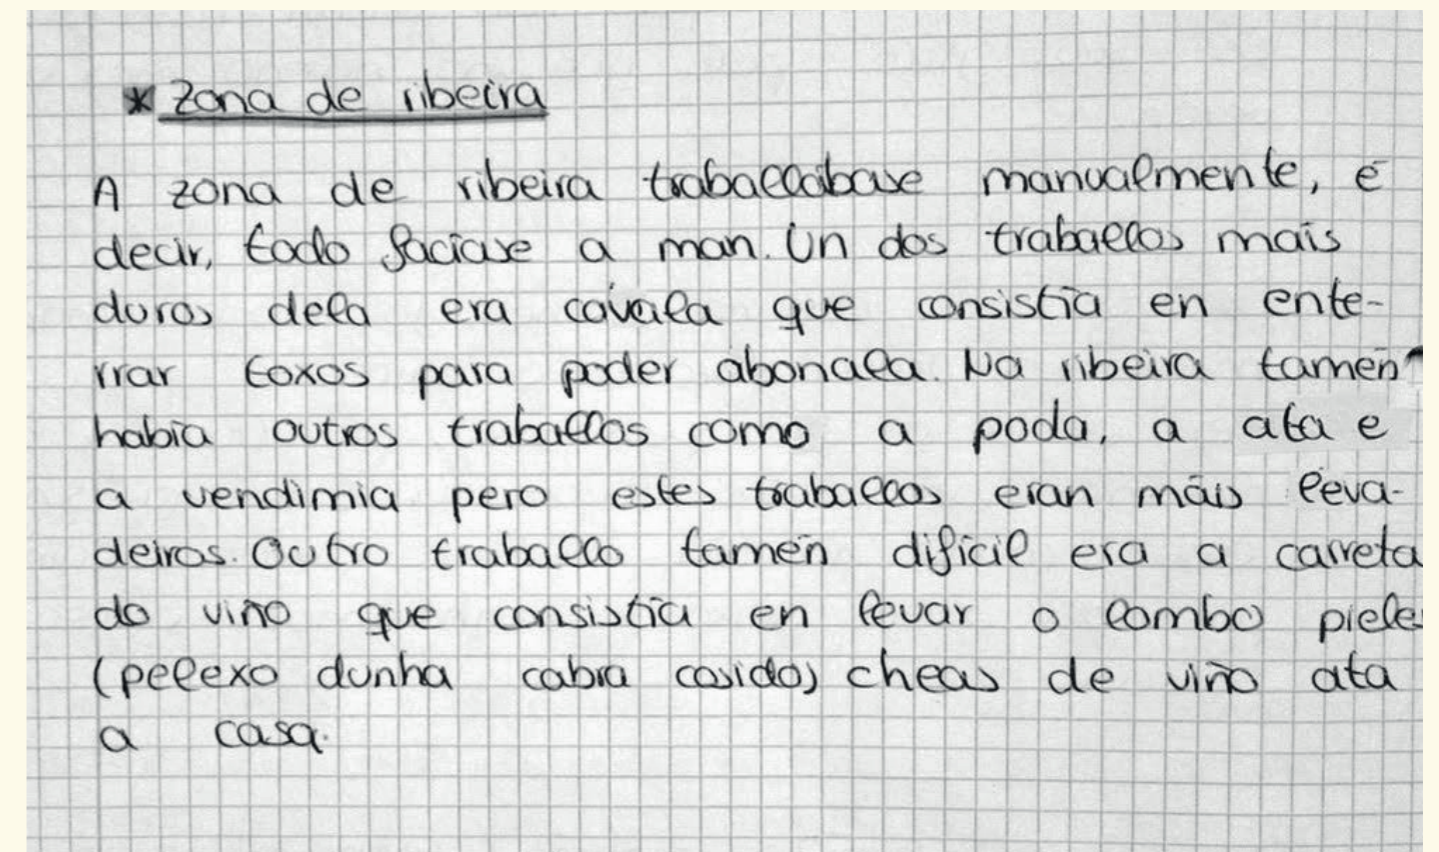 * Zona de ribeira
A zona de ribeira traballabase manualmente, é
decir, todo faciase a man. Un dos traballos mais
duros dela era cavala que consistía en ente-
rrar toxos para poder abonala. Na ribeira tamén
había outros traballos como a poda, a ata e
a vendimia pero estes traballos eran máis leva-
deiros. Outro traballo tamén difícil era a carreta
do viño que consistía en levar o lombo piele
(pelexo dunha cabra cosido) cheas de viño ata
a casa.